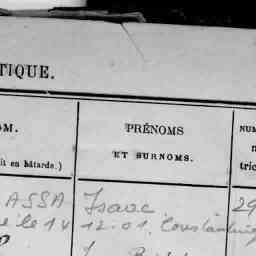 TIQUE.
OM. PRÉNOMS NUM
ET SURNOMS.
it en bâtarde.) tric
ASSA Isaac 29
le 14 12.01. Constantin